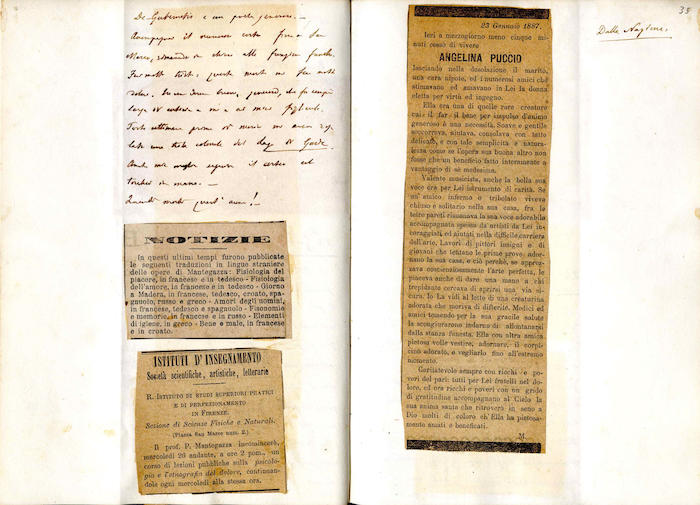 De Gubernatis e un poeta generoso. —
Accompagna il numeroso corteo fino a San
Marco,
molte
Forse settimane prima di morire mi aveva
lato una tela colorata del lago di Garda.
Anch
torchio in mano. —
Quanti morti quest'anno! —
NOTIZIE
In questi ultimi tempi furono pubblicate
le seguenti traduzioni in lingue straniere
delle opere di Mantegazza: Fisiologia del
piacere, in francese e in tedesco - Fisiologia
dell'amore, in francese e in tedesco - Giorno
a Madera, in francese, tedesco, croato, spa-
gnuolo, russo e greco - Amori degli uomini,
in francese, tedesco e spagnuolo - Fisonomie
e memorie, in francese e in russo - Elementi
di igiene, in greco - Bene e male, in francese
e in croato.
ISTITUTI D'INSEGNAMENTO
Società scientifiche, artistiche, letterarie
R. ISTITUTO DI STUDI SUPERIORI PRATICI
E DI PERFEZIONAMENTO
IN FIRENZE.
Sezione di Scienze Fisiche e Naturali.
(Piazza San Marco num. 2.)
Il prof. P. Mantegazza incomincerà,
mercoledì 26 andante, a ore 2 pom., un
corso di lezioni pubbliche sulla psicolo-
gia e l'etnografia del dolore, continuan-
dole ogni mercoledì alla stessa ora.
23 Gennaio 1887.
Ieri a mezzogiorno meno cinque mi-
nuti cessò di vivere
ANGELINA PUCCIO
lasciando nella desolazione il marito,
una cara nipote, ed i numerosi amici che
stimavano ed amavano in Lei la donna
eletta per virtù ed ingegno.
Ella era una di quelle rare creature
cui il far il bene per impulso d'animo
generoso è una necessità. Soave e gentile
soccorreva, aiutava, consolava con tatto
delicato, e con tale semplicità e natura-
lezza come se l'opera sua buona altro non
fosse che un beneficio fatto interamente a
vantaggio di sè medesima.
Valente musicista, anche la bella sua
voce era per Lei istrumento di carità. Se
un'amico infermo e tribolato viveva
chiuso e solitario nella sua casa, fra le
tetre pareti risuonava la sua voce adorabile
accompagnata spesso da artisti da Lei in-
coraggiati ed aiutati nella difficile carriera
dell'arte. Lavori di pittori insigni e di
giovani che tentano le prime prove, ador-
nano la sua casa, e ciò perchè, se apprez-
zava coscienziosamente l'arte perfetta, le
piaceva anche di dare una mano a chi
trepidante cercava di aprirsi una via si-
cura. Io La vidi al letto di una creaturina
adorata che moriva di difterite. Medici ed
amici temendo per la sua gracile salute
la scongiurarono indarno di allontanarsi
dalla stanza funesta. Ella con altra amica
pietosa volle vestire, adornare, il corpi-
cino adorato, e vegliarlo fino all'estremo
momento.
Caritatevole sempre con ricchi e po-
veri del pari: tutti per Lei fratelli nel do-
lore, ed ora ricchi e poveri con un grido
di gratitudine accompagnano al Cielo la
sua anima santa che ritroverà in seno a
Dio molti di coloro ch'Ella ha pietosa-
mente amati e beneficati.
M...
Dalla Nazione.
35